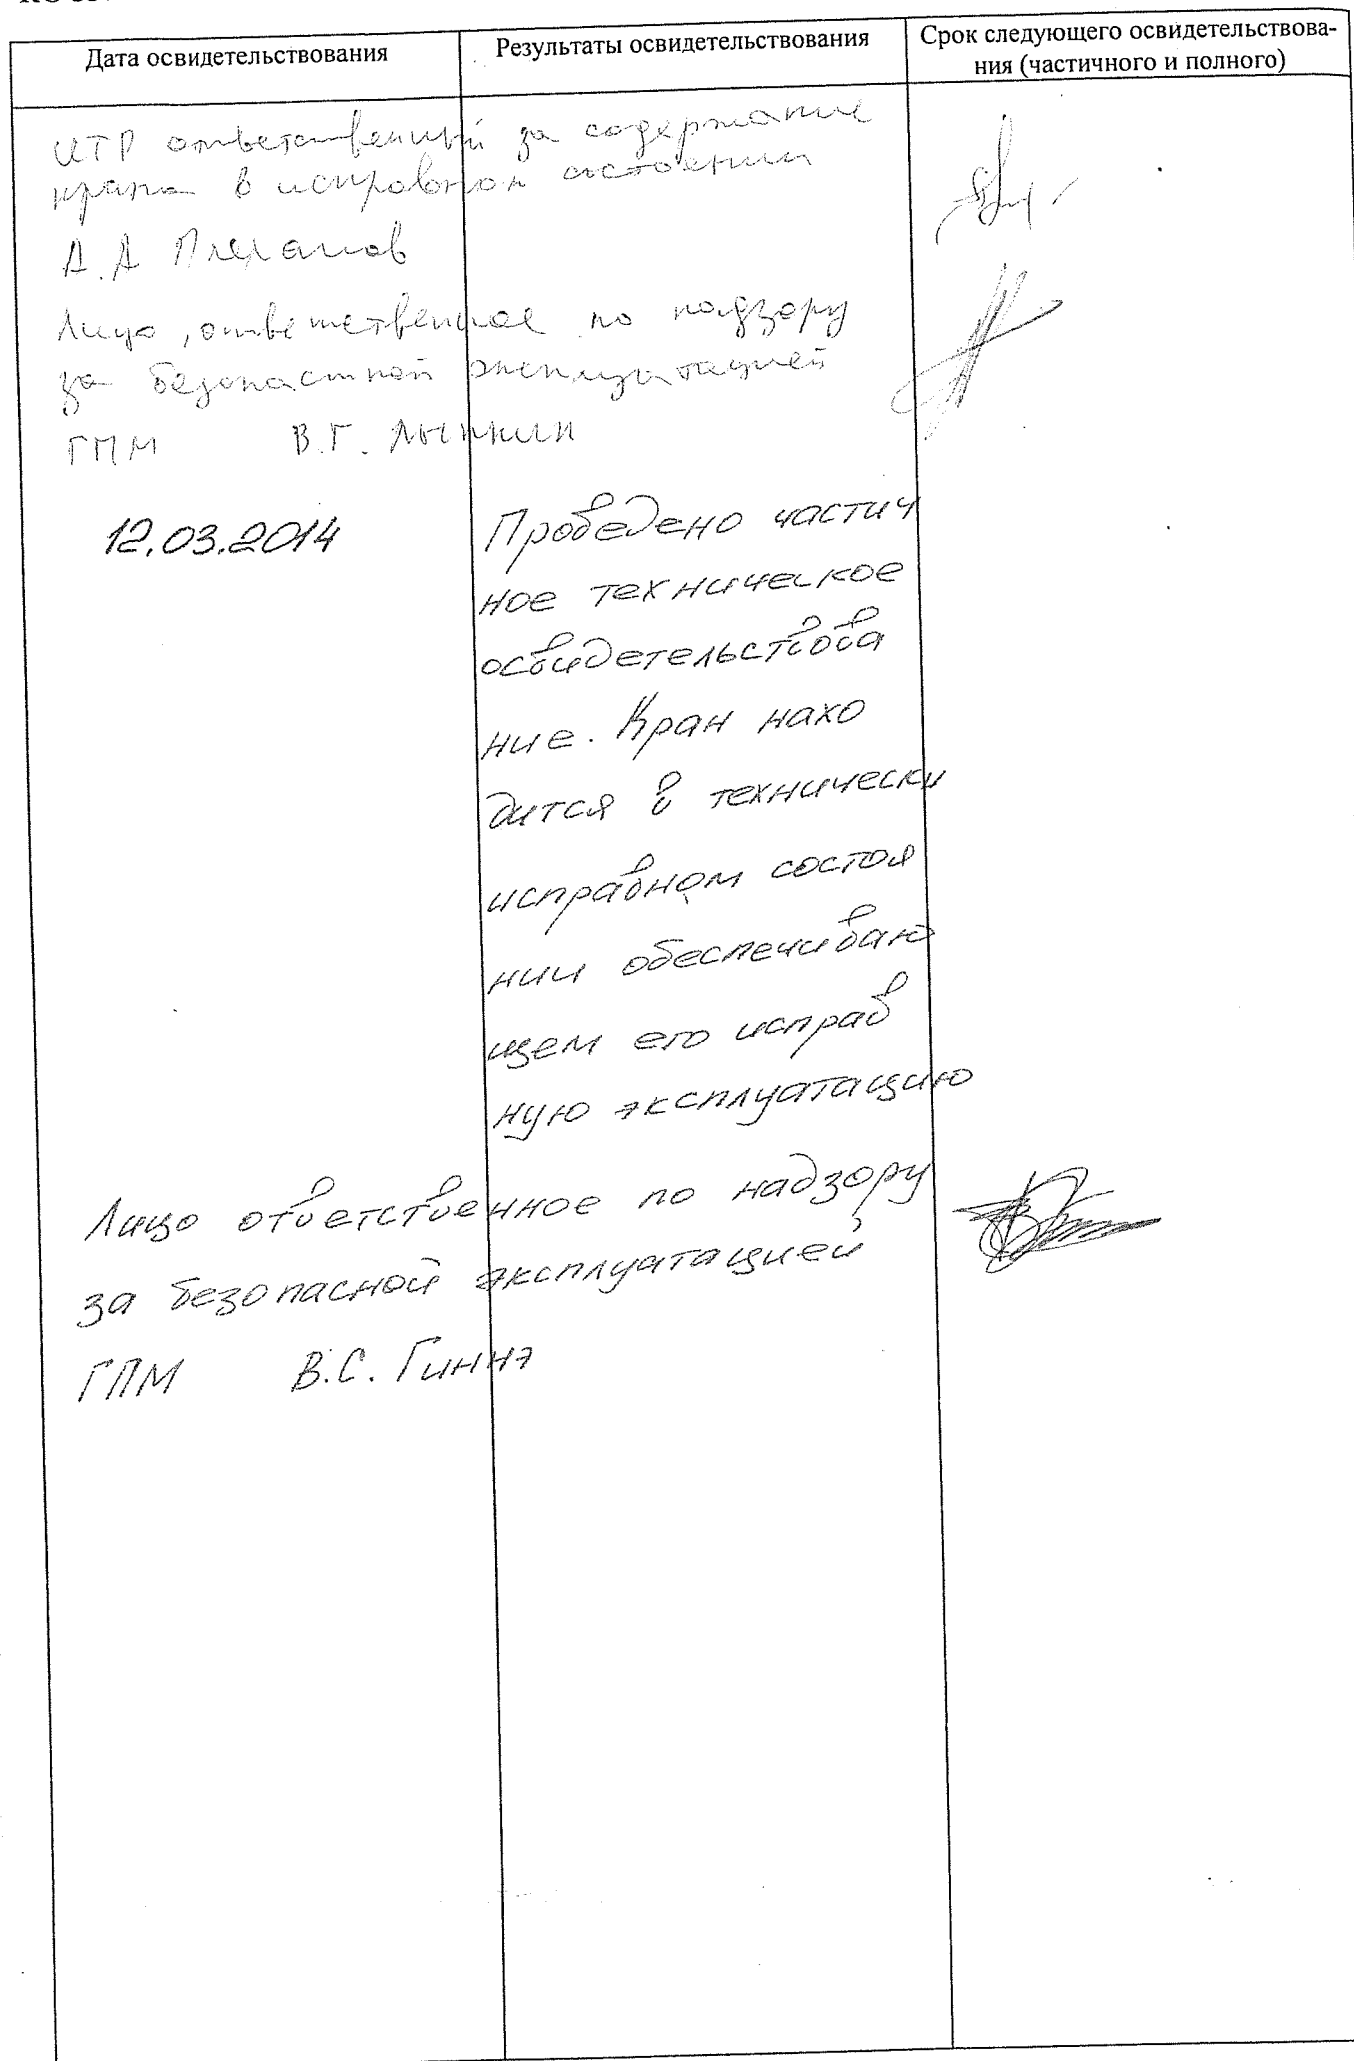 Дата освидетельствования
Результаты освидетельствования
Срок следующего освидетельствова-
ния (частичного и полного)
ИТР ответственный за содержание
крана в исправном состоянии
А.А Плеханов
Лицо, ответственное по надзору
за безопастной эксплуатацией
ГПМ В.Г. Лынкин
12.03.2014
Проведено частич
ное техническое
освидетельствова
ние. Кран нахо
дится в технически
исправном состоя
нии обеспечиваю
щем его исправ
ную эксплуатацию
Лицо ответственное по надзору
за безопасной эксплуатацией
ГПМ В.С. Гиннэ